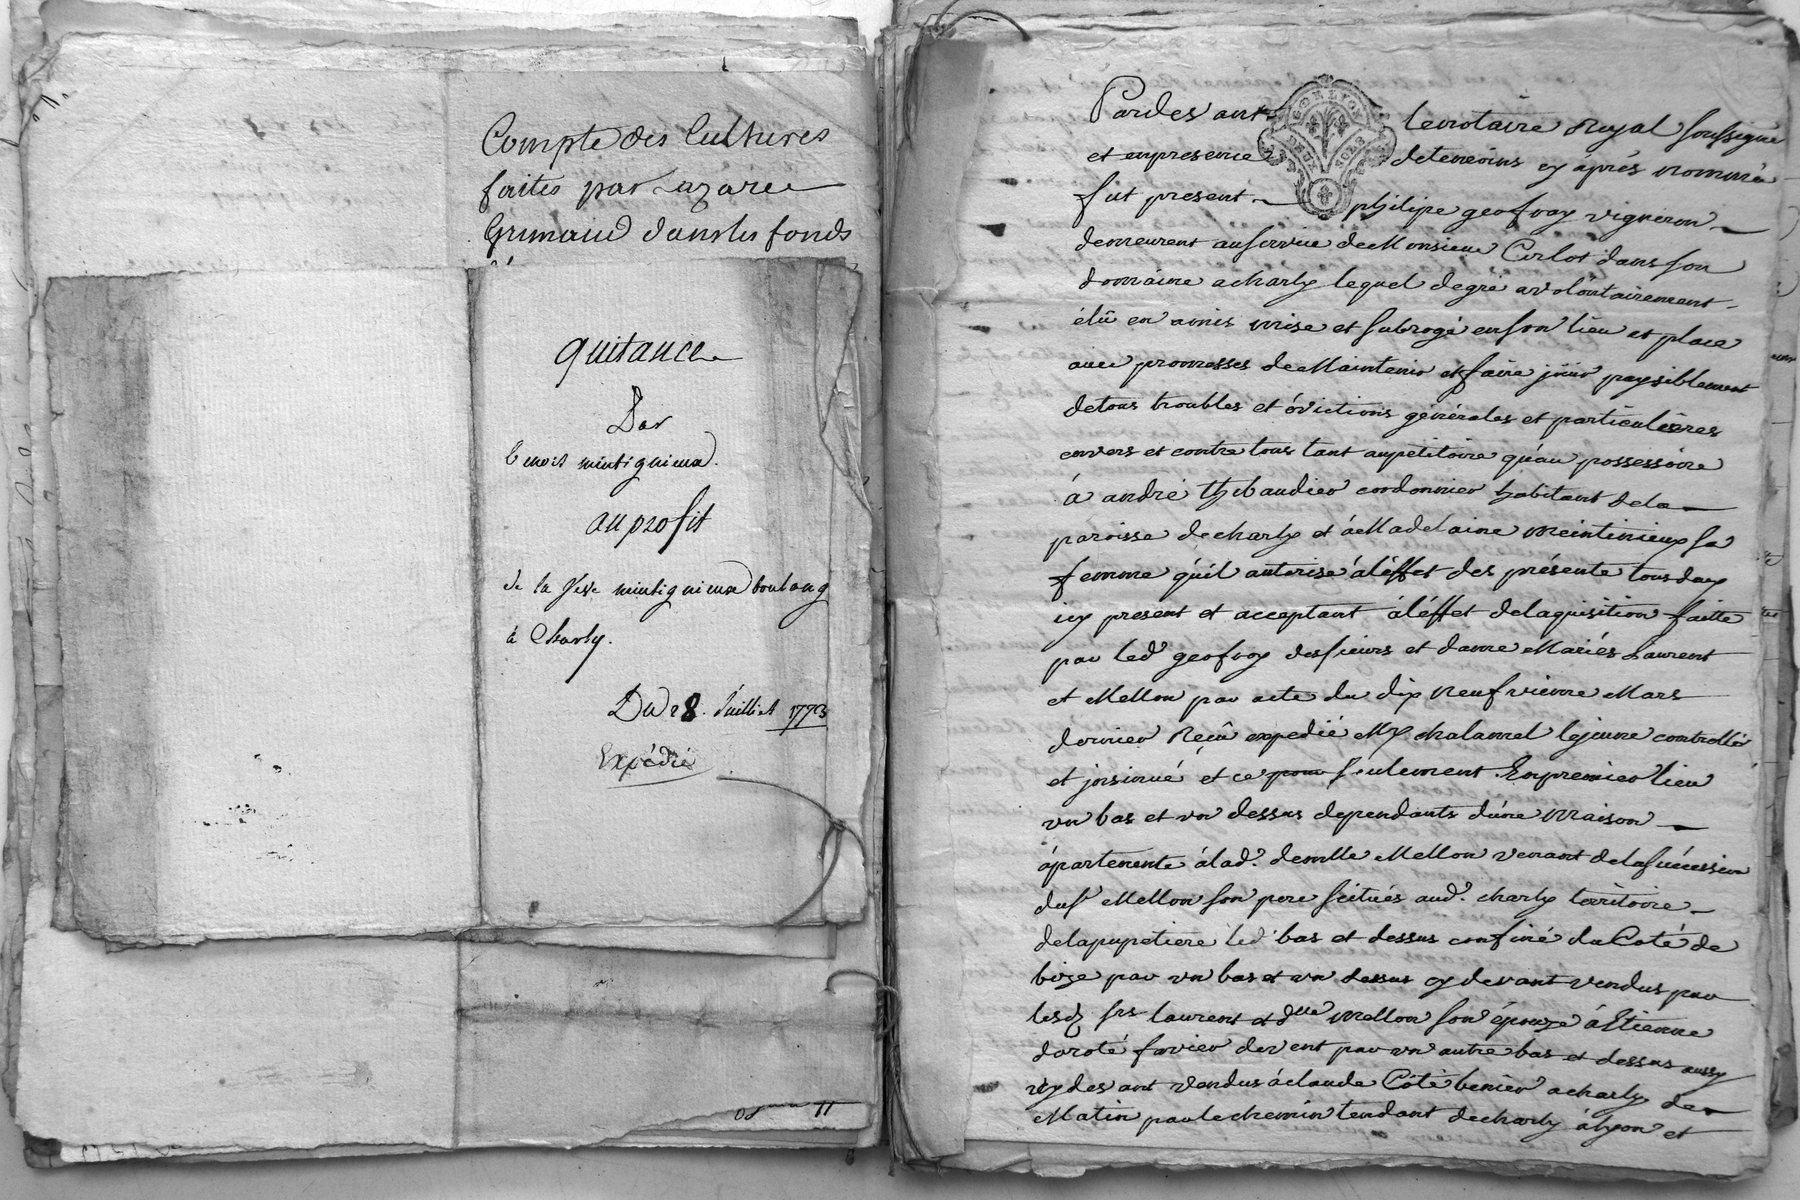 Compte des Cultures
faites par Lazare
Grimaud dans les fonds
quitance
Par
benoit mintignieux
au profit
de la Veve mintignieux boulang
à Charly.
Du 28. Juillet 1773
Expédié
Pardevant le notaire Royal soussigné
GEN LYON
DEUX SOLS
et en presence de temoins cy après nommé
fut present philipe geofroy vigneron
demeurent au service de Monsieur Carlot dans son
domaine a charly lequel de gré a volontairement
élû en amis mise et subrogé en son lieu et place
avec promesses de Maintenir et faire jouir paysiblement
de tous troubles et évictions générales et particulières
envers et contre tous tant au petitoire qu'au possessoire
à andré thibaudier cordonnier habitant de la
paroisse de charly et à Madelaine meintinieux sa
femme qu'il autorise à l'éffet des présente tous deux
icy present et acceptant à l'éffet de l'aquisition faitte
par led. geofroy des sieurs et dame Mariés Laurent
et Mellon par acte du dix neufvieme Mars
dernier Reçû expedié Me chalamel lejeune controllé
et jnsinué et ce pour seulement En premier lieu
un bas et un dessus dependants d'une maison
apartenente à lad. demlle Mellon venant de la succession
du sr Mellon son pere scitués aud. charly territoire
de la papetiere led. bas et dessus confiné du Coté de
bize par un bas et un dessus cy devant vendus par
lesd. srs laurent et dlle mellon son épouze à Etienne
doroté favier de vent par un autre bas et dessus aussy
cy devant vendus à claude Coté benier a charly de
Matin par le chemin tendant de charly à lyon et